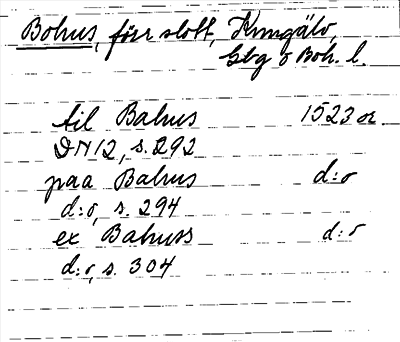 Bohus, förr slott, Kungälv,
Gbg o Boh. l.
til Bahus 1523 or.
DN 12, s. 292
paa Bahus d:o
d:o, s. 294
ex Bahuss d:o
d:o, s. 304